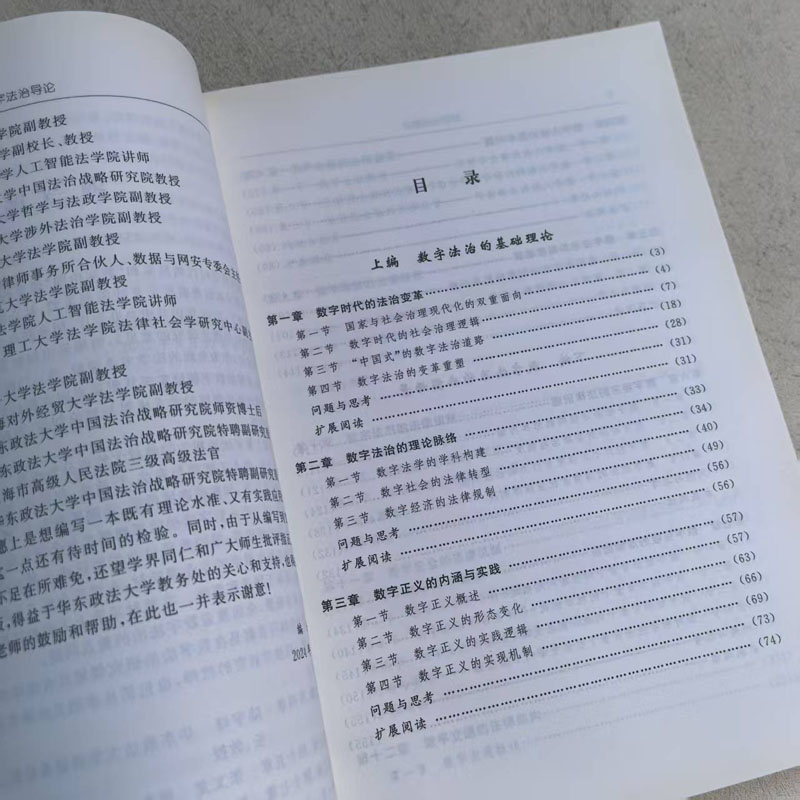 字法治导论
学院副教授
学副校长、教授
学人工智能法学院讲师
大学中国法治战略研究院教授
大学哲学与法政学院副教授
大学涉外法治学院副教授
大学法学院副教授
律师事务所合伙人、数据与网安专委会主任
大学法学院副教授
法学院人工智能法学院讲师
理工大学法学院法律社会学研究中心副主
大学法学院副教授
海对外经贸大学法学院副教授
东政法大学中国法治战略研究院师资博士后
东政法大学中国法治战略研究院特聘副研究
海市高级人民法院三级高级法官
华东政法大学中国法治战略研究院特聘副研究
上是想编写一本既有理论水准、又有实践应
一点还有待时间的检验。同时,由于从编写到
不足在所难免,还望学界同仁和广大师生批评指正
,得益于华东政法大学教务处的关心和支持,也
老师的鼓励和帮助,在此也一并表示谢意!
编
2024
目 录
上编 数字法治的基础理论
第一章 数字时代的法治变革 (3)
第一节 国家与社会治理现代化的双重面向 (4)
第二节 数字时代的社会治理逻辑 (7)
第三节 “中国式”的数字法治道路 (18)
第四节 数字法治的变革重塑 (28)
问题与思考 (31)
扩展阅读 (31)
第二章 数字法治的理论脉络 (33)
第一节 数字法学的学科构建 (34)
第二节 数字社会的法律转型 (40)
第三节 数字经济的法律规制 (49)
问题与思考 (56)
扩展阅读 (56)
第三章 数字正义的内涵与实践 (57)
第一节 数字正义概述 (57)
第二节 数字正义的形态变化 (63)
第三节 数字正义的实践逻辑 (66)
第四节 数字正义的实现机制 (69)
问题与思考 (74)
扩展阅读 (74)